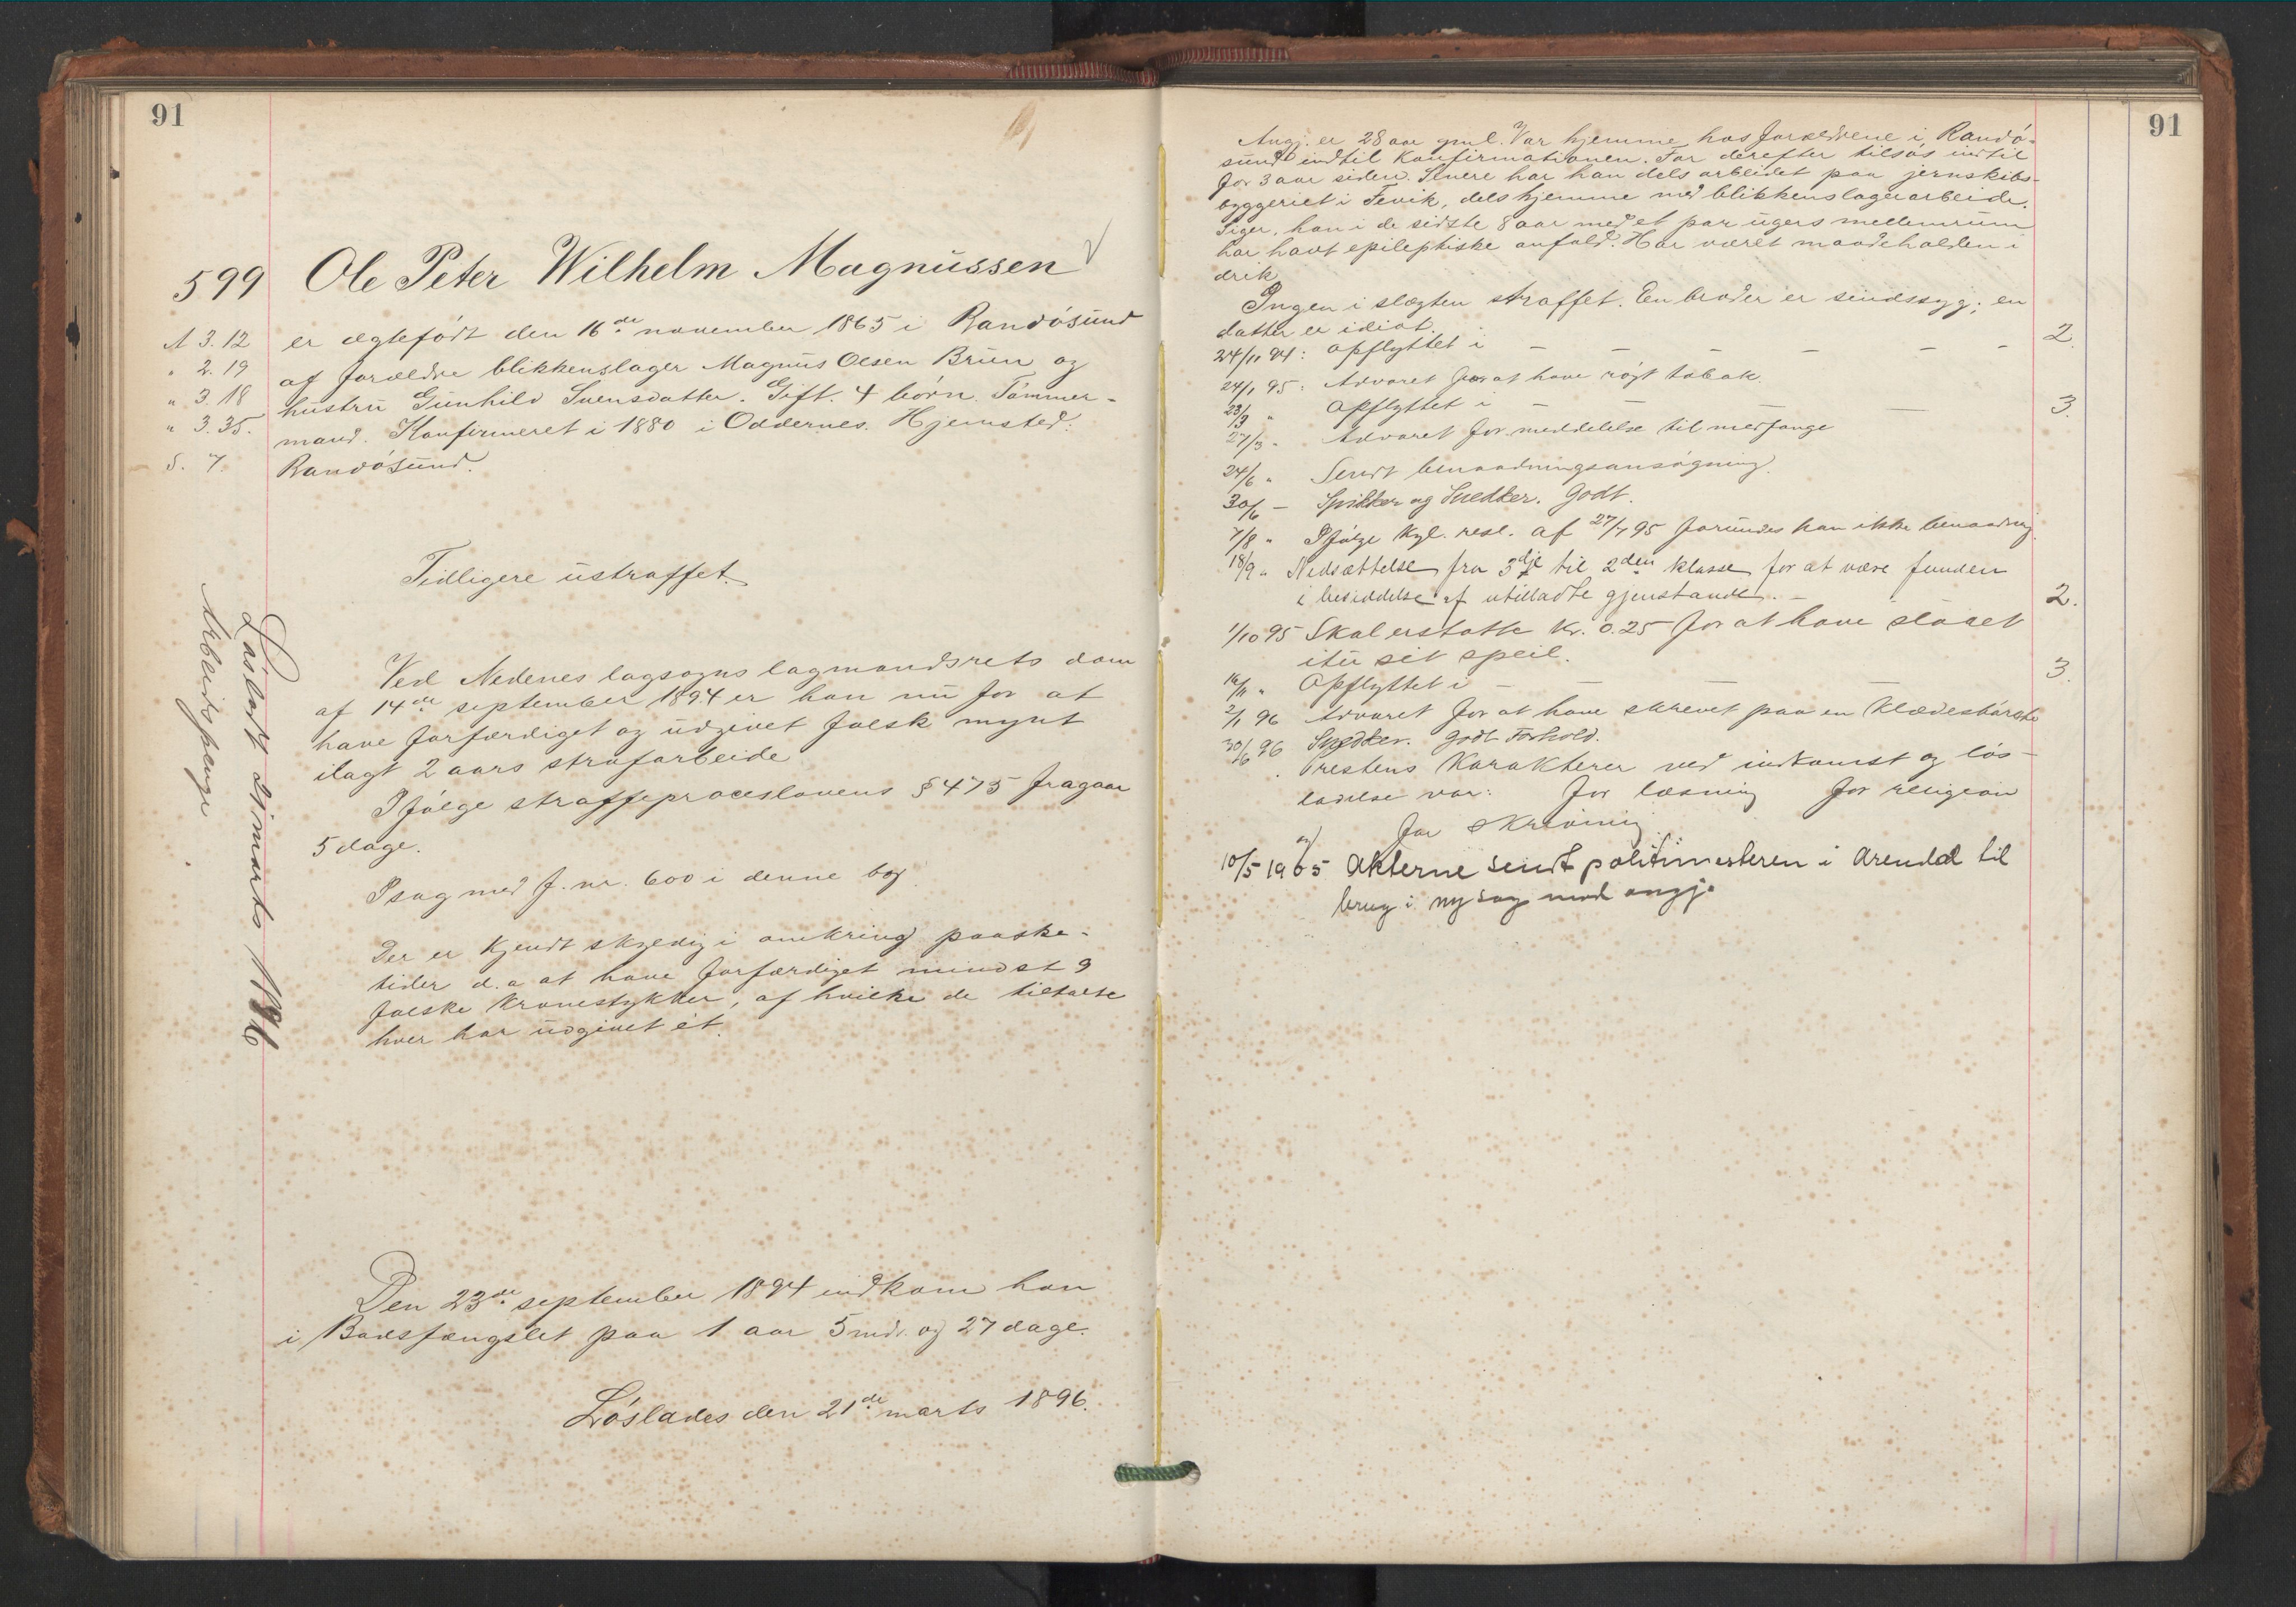 91
599 Ole Peter Wilhelm Magnussen
A 3. 12
" 2. 19
" 3. 18
" 3. 35.
S. 7.
er ægtefödt den 16de november 1865 i Randösund
af forældre blikkenslager Magnus Olsen Bruun og
hustru Gunhild Svensdatter. Gift. 4 börn. Tömmer-
mand. Konfirmeret i 1880 i Oddernes. Hjemsted:
Randösund.
Tidligere ustraffet.
Lösladt 21 marts 1896
Arbeidspenge
Ved Nedenes lagsogns lagmandsrets dom
af 14de september 1894 er han nu for at
have forfærdiget og udgivet falsk mynt
ilagt 2 aars strafarbeide
Ifölge straffeproceslovens § 475 fragaar
5 dage.
I sag med f. nr. 600 i denne bog.
Der er kjendt skyldig i omkring paaske-
tider d. a. at have forfærdiget mindst 9
falske kronestykker, af hvilke de tiltalte
hver har udgivet ét.
Den 23de september 1894 indkom han
i Bodsfængslet paa 1 aar 5 mdr. og 27 dage.
Löslades den 21de marts 1896.
91
Angj. er 28 aar gml. Var hjemme hos forældrene i Randö-
sund indtil konfirmationen. For derefter tilsös indtil
for 3 aar siden. Senere har han dels arbeidet paa jernskibs-
byggeriet i Fevik, dels hjemme med blikkenslagerarbeide.
Siger, han i de sidste 8 aar med et par ugers mellemrum
har havt epileptiske anfald. Har været maadeholden i
drik
Ingen i slægten straffet. En broder er sindssyg; en
datter er idiot.
24/11 94: Opflyttet i — — — — — — 2.
24/1 95: Advaret for at have rögt tobak.
23/3 " Opflyttet i — — — — 3.
27/3 " Advaret for meddelelse til medfange
24/6 " Sendt benaadningsansögning.
30/6 — Spikker og Snedker. Godt.
7/8 " Ifölge kgl. resl. af 27/7 95 forundes han ikke benaadning
18/9 " Nedsættelse fra 3dje til 2den klasse for at være funden
i besiddelse af utilladte gjenstande. — 2.
1/10 95 Skal erstatte kr. 0.25 for at have slaaet
itu sit speil.
16/11 " Opflyttet i — — — — 3.
2/1 96 Advaret for at have skrevet paa en klædesbörste
30/6 96 Snedker. Godt Forhold.
Prestens karakterer ved indkomst og lös-
ladelse var: for læsning for religion
og for skrivning
10/5 1905 Akterne sendt politimesteren i Arendal til
brug i ny sag mod angj.